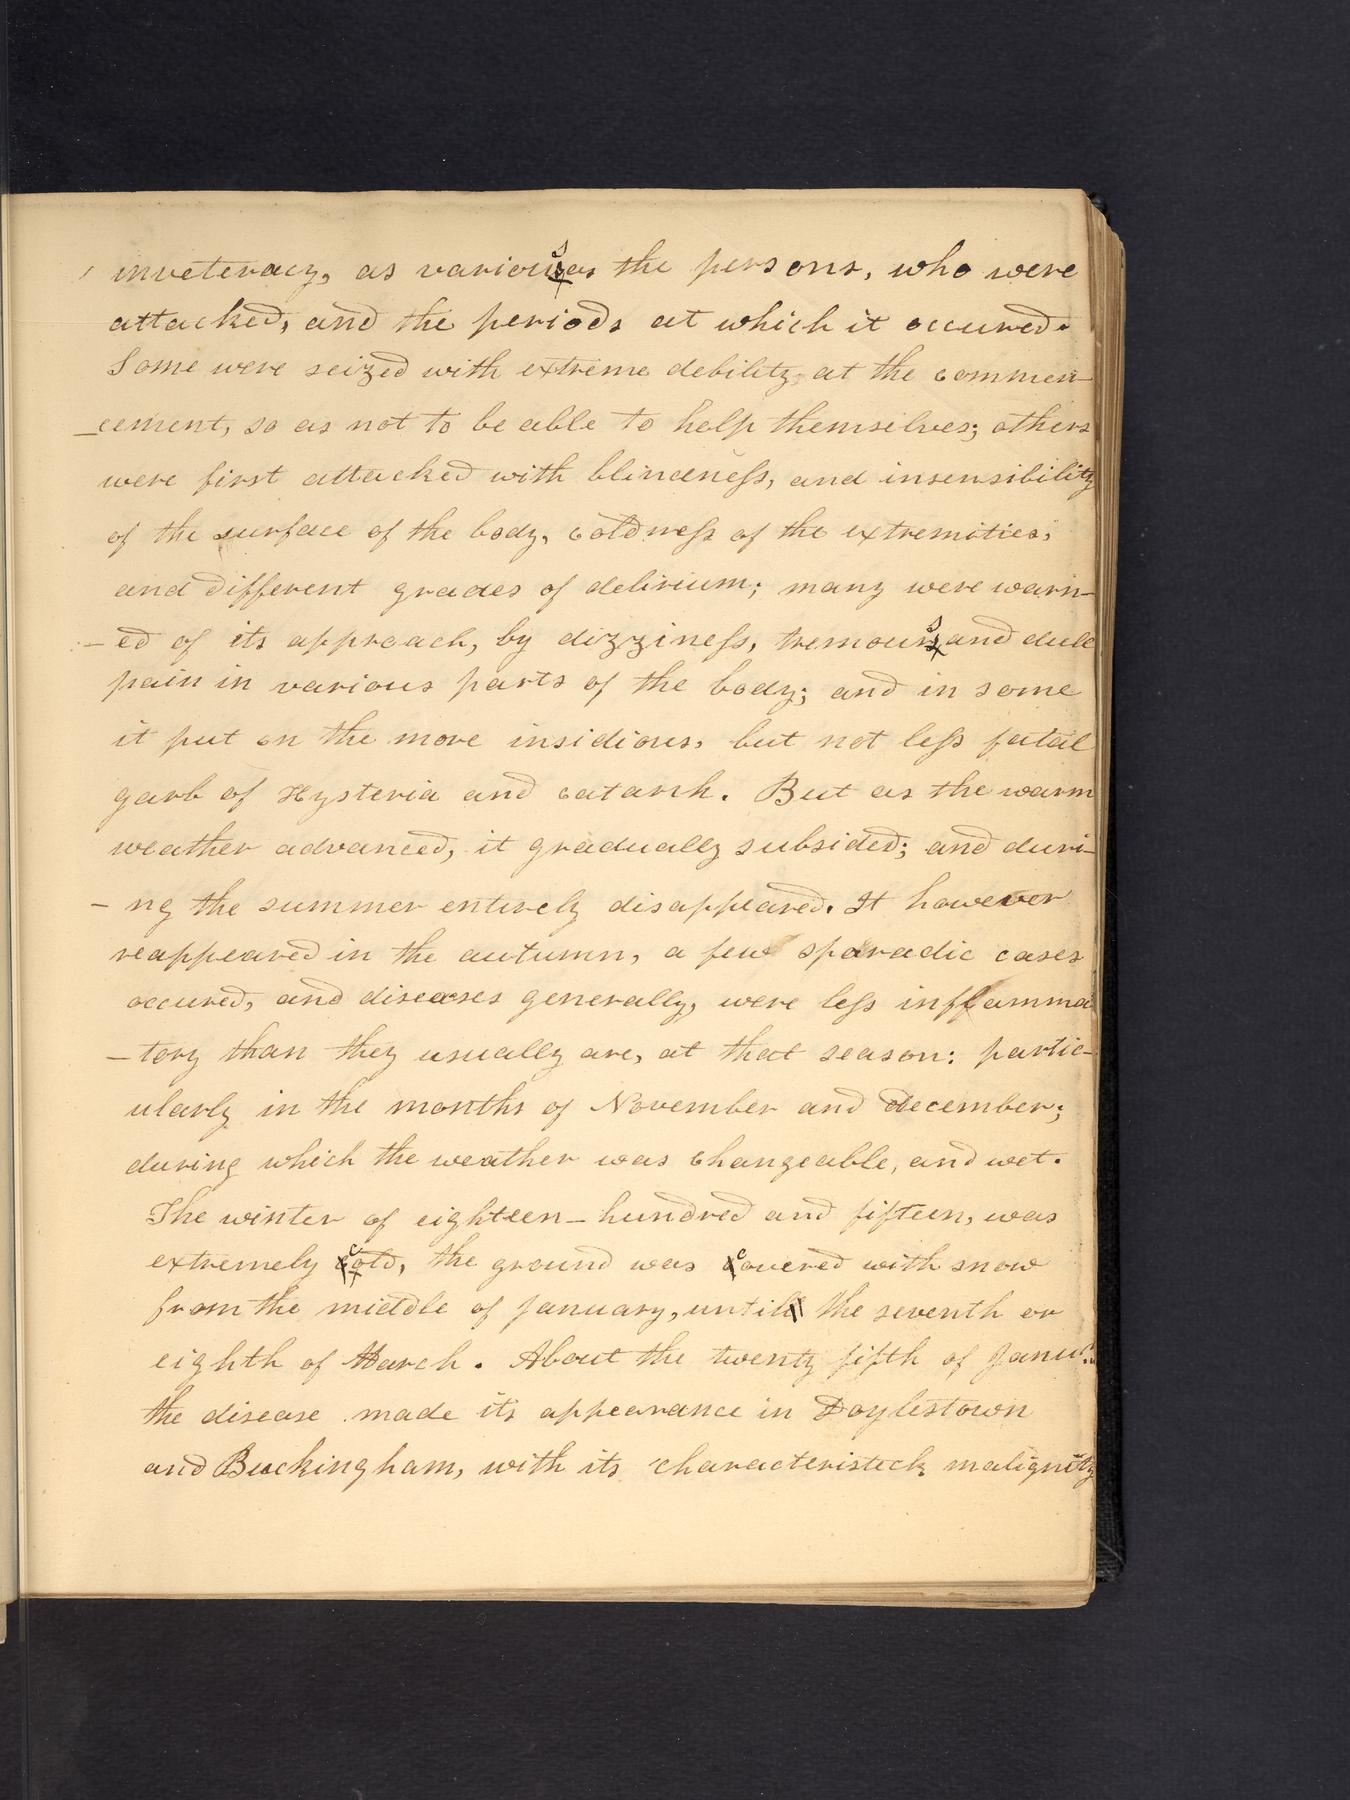 inveteracy, as various as the persons, who were
attacked, and the periods at which it occured.
Some were seized with extreme debility, at the commen-
-cement, so as not to be able to help themselves; others
were first attacked with blindneſs, and insensibility
of the surface of the body, coldneſs of the extremities;
and different grades of delirium; many were warn-
-ed of its approach, by dizzineſs, tremours and dull
pain in various parts of the body; and in some
it put on the more insidious, but not leſs fatal
garb of Hysteria and catarrh. But as the warm
weather advanced, it gradually subsided; and duri-
-ng the summer entirely disappeared. It however
reappeared in the autumn, a few sparadic cases
occured, and diseases generally, were leſs inflamma
-tory than they usually are, at that season: partic-
ularly in the months of November and december;
during which the weather was changeable, and wet.
The winter of eighteen-hundred and fifteen, was
extremely cold, the ground was covered with snow
from the middle of January, until the seventh or
eighth of March. About the twenty fifth of Janu.
the disease made its appearance in Doylestown
and Buckingham, with its characteristick malignity